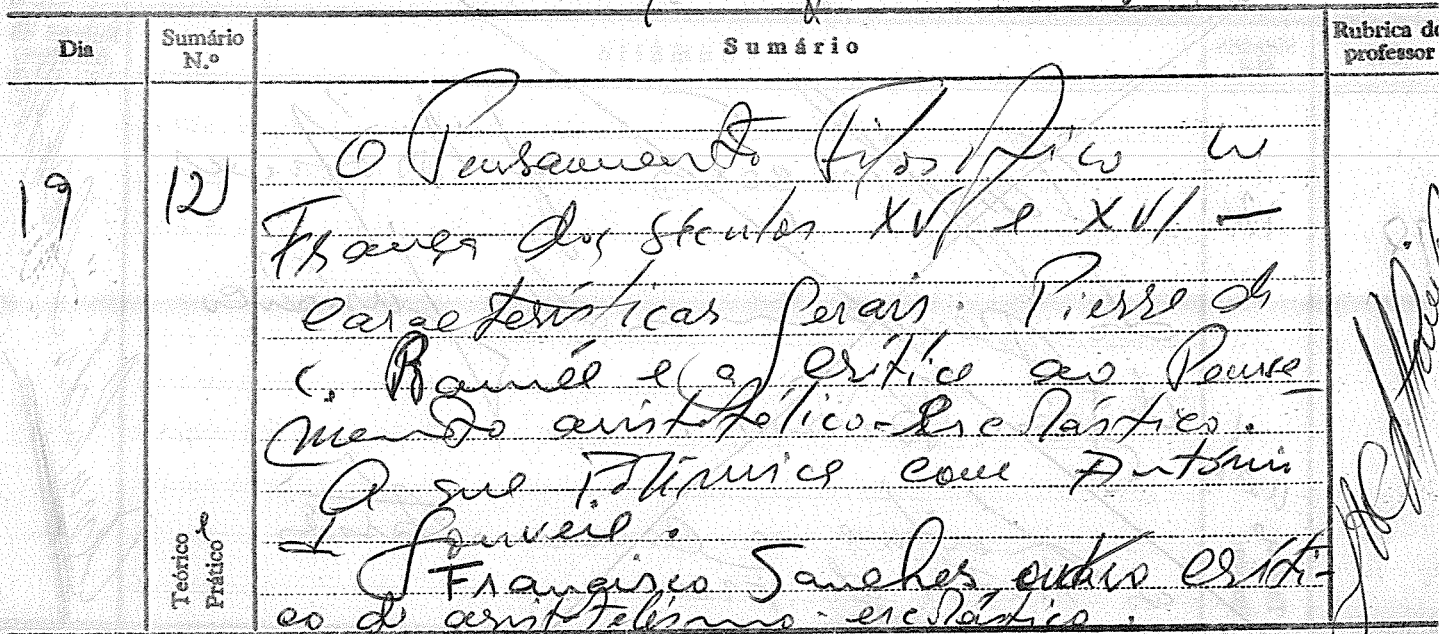 Dia
Sumário N.º
Sumário
Rubrica do professor
19
12
O Pensamento Filosófico em
França dos séculos XVI e XVI —
características gerais. Pierre de
Ramée e a crítica ao Pensa-
mento aristotélico-escolástico.
A sua Polémica com António
de Gouveia.
Francisco Sanches outro críti-
co do aristotelismo-escolástico.
Teórico e
Prático